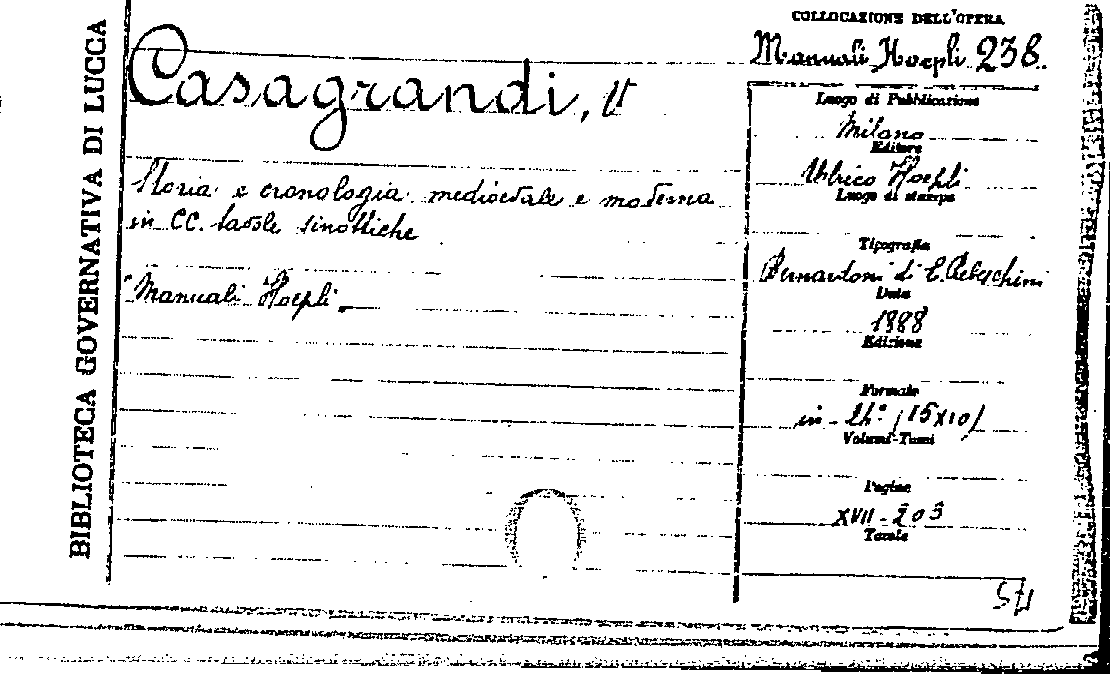 BIBLIOTECA GOVERNATIVA DI LUCCA
Casagrandi, V
Storia e cronologia medioevale e moderna
in CC. tavole sinottiche
"Manuali Hoepli"
COLLOCAZIONE DELL'OPERA
Manuali Hoepli 238.
Luogo di Pubblicazione
Milano
Editore
Ulrico Hoepli
Luogo di stampa
Tipografia
Bernardoni di C. Rebeschini
Data
1888
Edizione
Formato
in-24° (15x10)
Volumi-Tomi
Pagine
XVII-203
Tavole